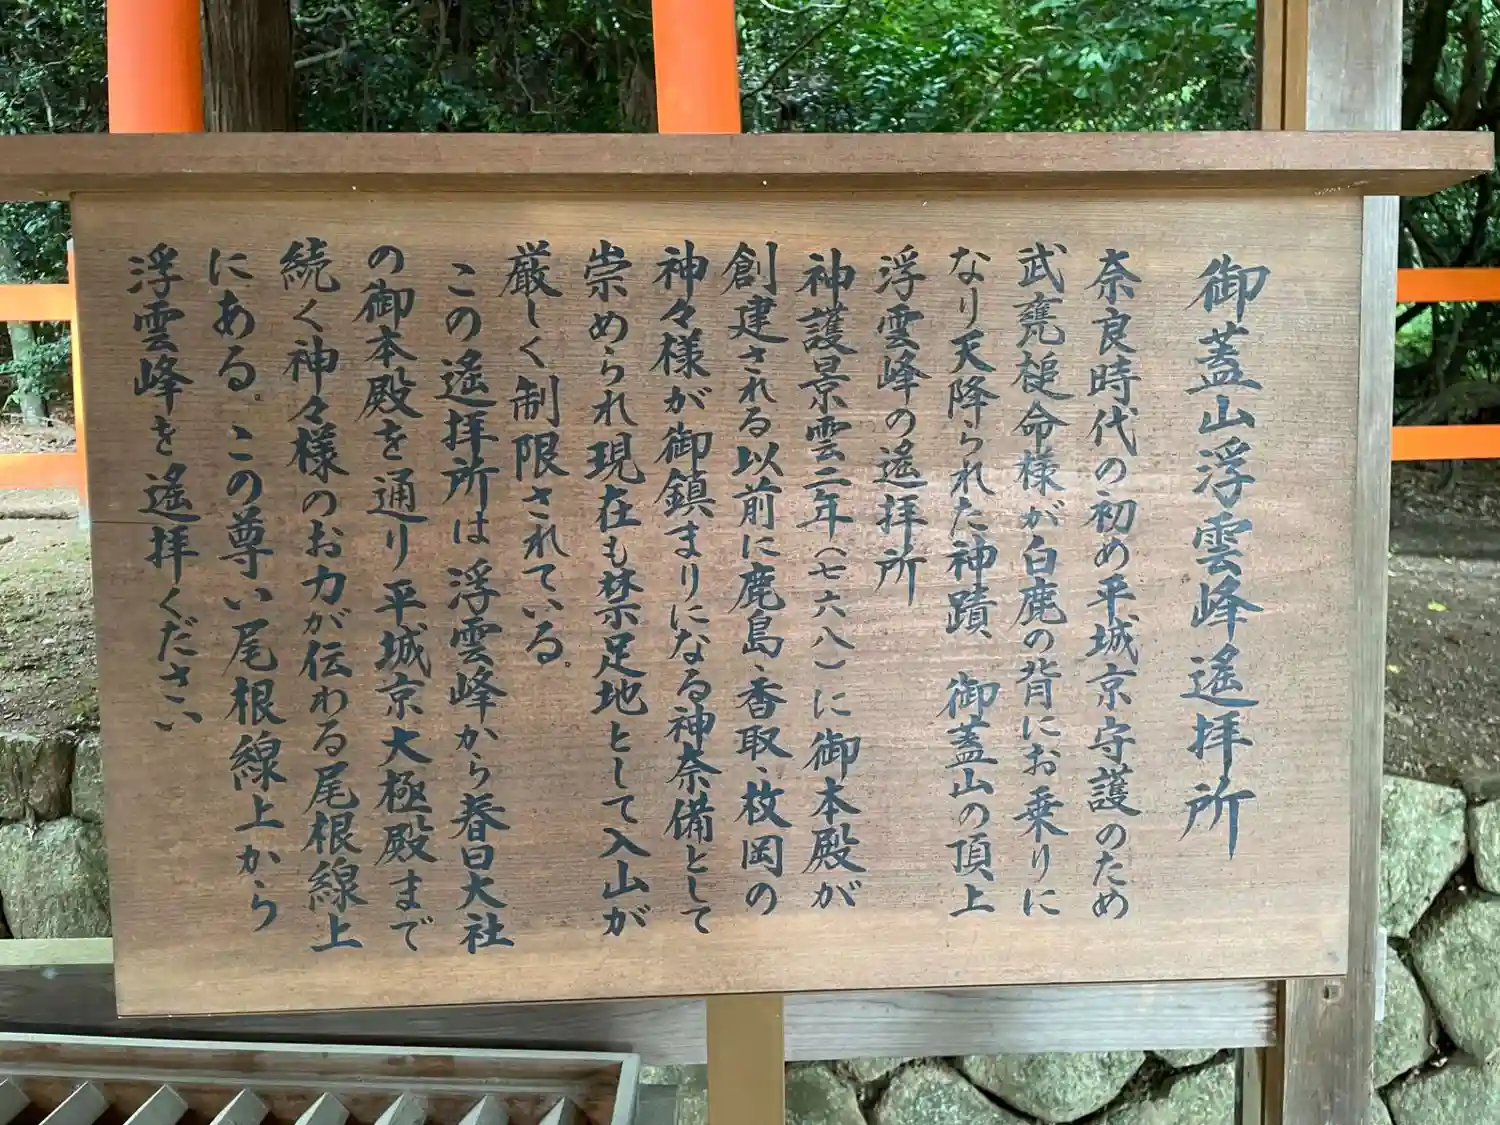 御蓋山浮雲峰遙拝所
奈良時代の初め平城京守護のため
武甕槌命様が白鹿の背にお乗りに
なり天降られた神蹟、御蓋山の頂上
浮雲峰の遙拝所
神護景雲二年（七六八）に御本殿が
創建される以前に鹿島、香取、枚岡の
神々様が御鎮まりになる神奈備として
崇められ現在も禁足地として入山が
厳しく制限されている。
この遙拝所は浮雲峰から春日大社
の御本殿を通り平城京大極殿まで
続く神々様のお力が伝わる尾根線上
にある。この尊い尾根線上から
浮雲峰を遙拝ください